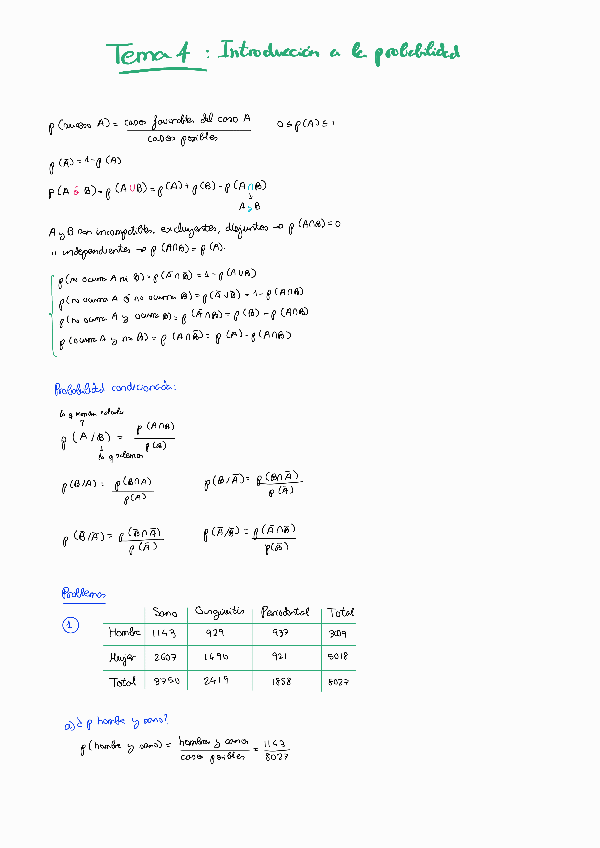 Tema 4 : Introducción a la probabilidad
p (suceso A) = casos favorables del caso A / casos posibles 0 ≤ p(A) ≤ 1
p (Ā) = 1 - p (A)
p (A ó B) = p (A ∪ B) = p(A) + p(B) - p(A∩B)
↓
A y B
A y B son incompatibles, excluyentes, disjuntos → p (A∩B) = 0
" independientes → p (A∩B) = p (A).
p (no ocurra A ni B) = p(Ā ∩ B̄) = 1 - p (A ∪ B)
p (no ocurra A ó no ocurra B) = p(Ā ∪ B̄) = 1 - p (A∩B)
p (no ocurra A y ocurra B) = p (Ā ∩ B) = p (B) - p (A∩B)
p (ocurra A y no B) = p (A∩B̄) = p (A) - p (A∩B)
Probabilidad condicionada:
↑
p (A / B) = p (A∩B) / p(B)
↓
lo q sabemos
p (B/A) = p (B∩A) / p(A) p (B/Ā) = p (B∩Ā) / p (Ā).
p (B̄/Ā) = p (B̄∩Ā) / p (Ā) p (Ā/B̄) = p (Ā∩B̄) / p(B̄)
Problemas
Sano Gingivitis Periodontal Total
1 Hombre 1143 929 937 3009
Mujer 2607 1490 921 5018
Total 3750 2419 1858 8027
a) ¿ p hombre y sano?
p (hombre y sano) = hombres y sanos / casos posibles = 1143 / 8027